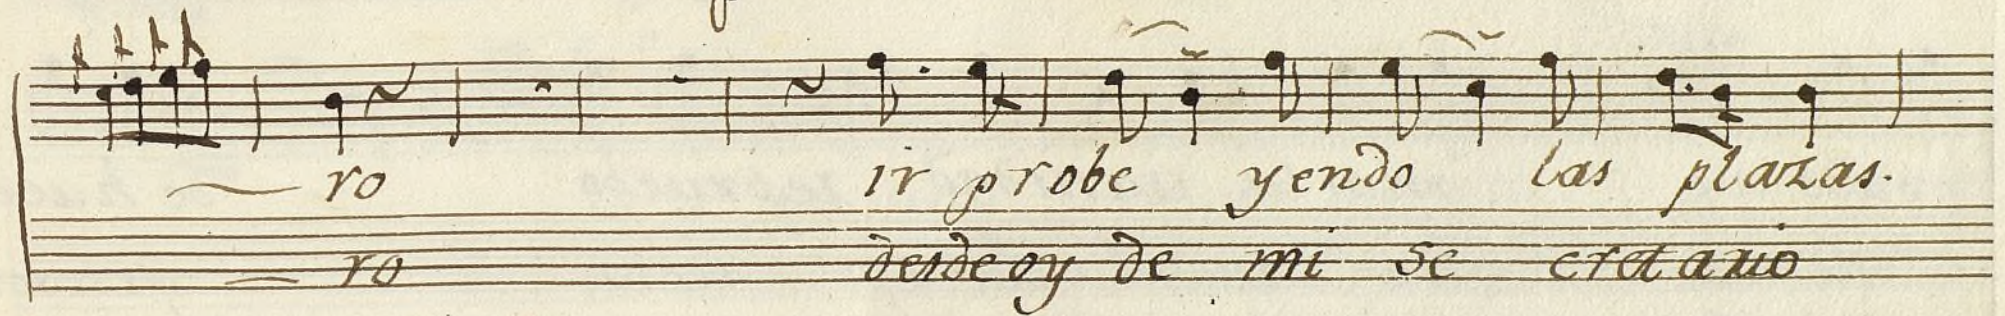 ro ir probe yendo las plazas.
ro desde oy de mi se cretario